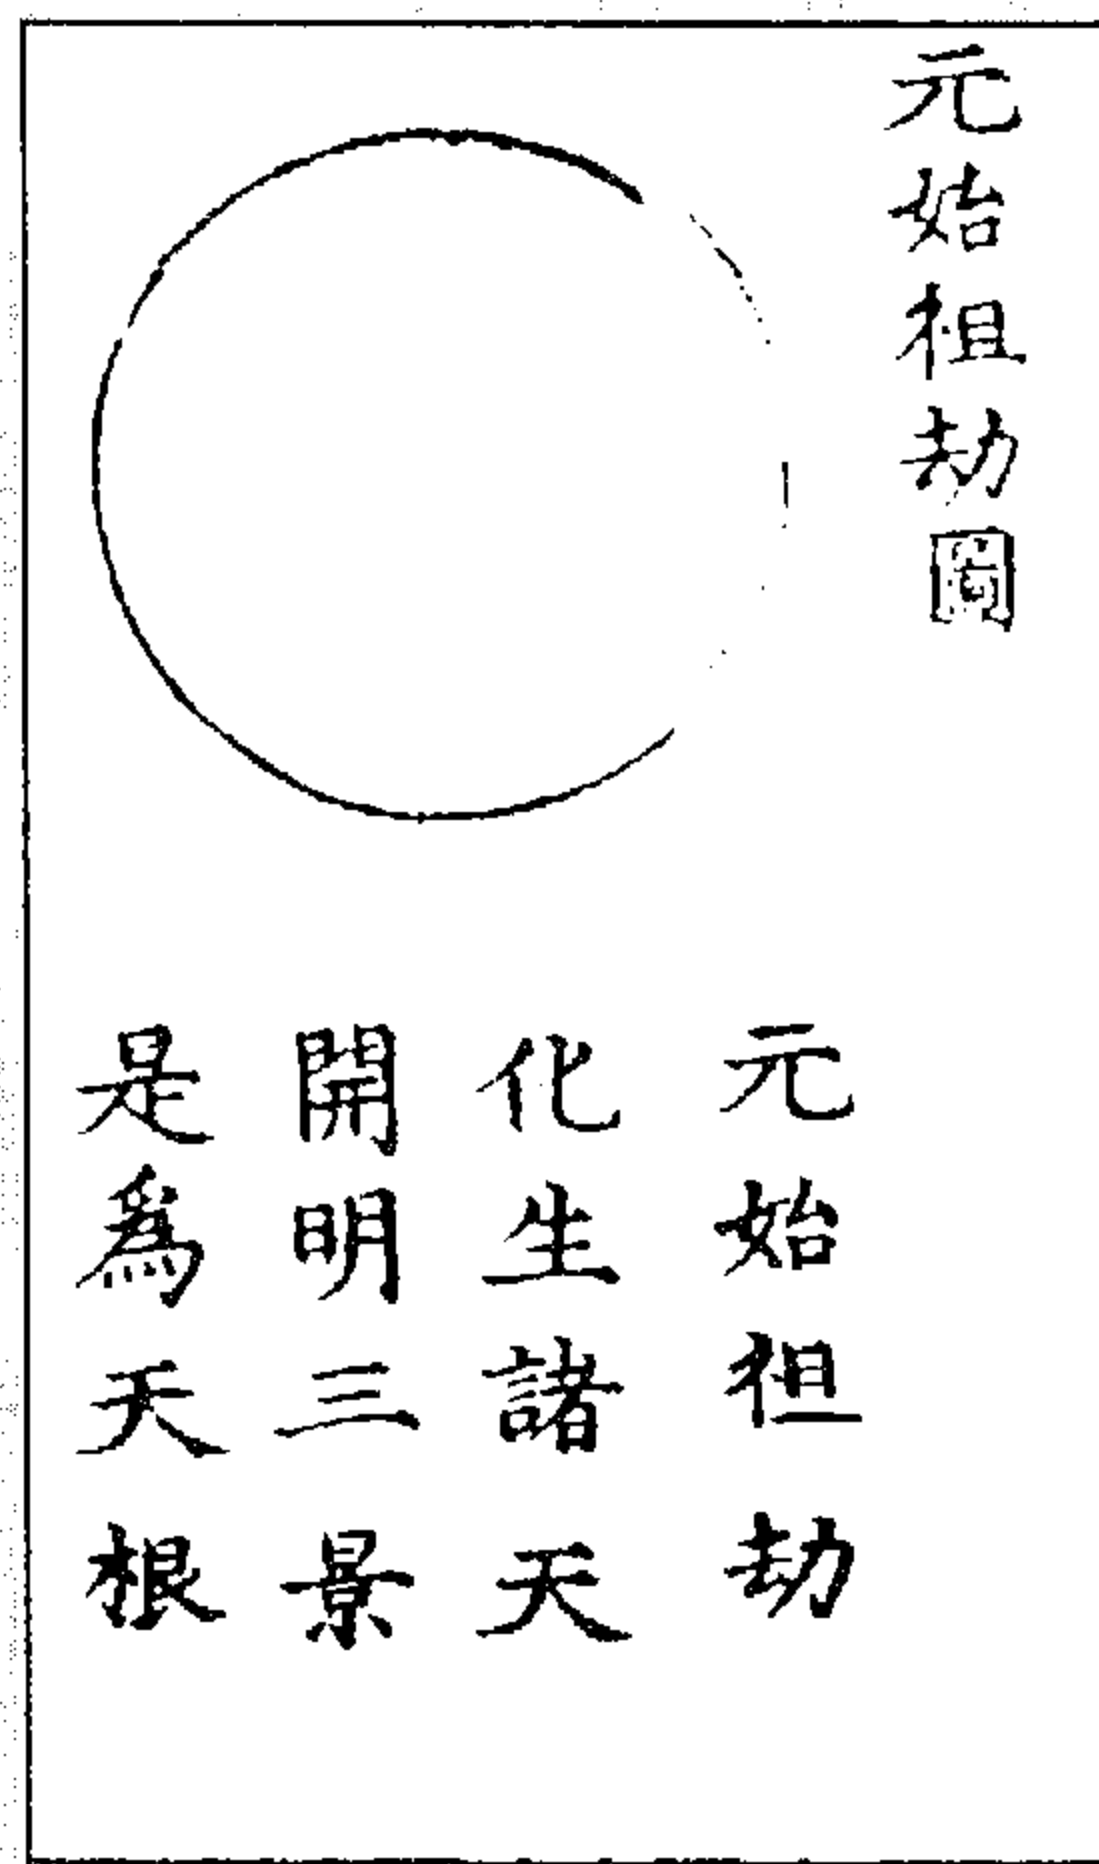 元始祖劫圖
元始祖劫
化生諸天
開明三景
是為天根